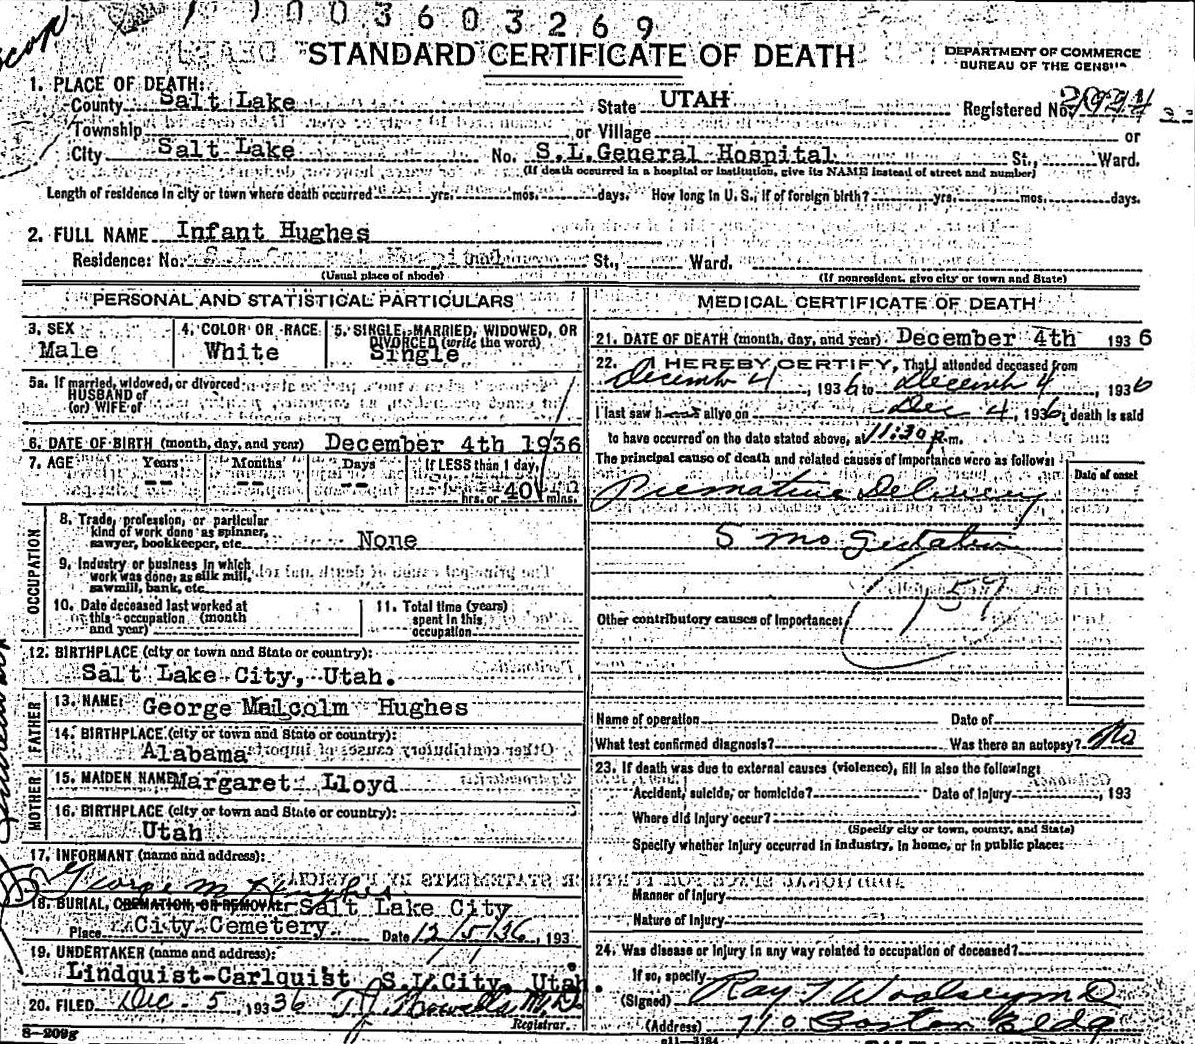 1003603269
STANDARD CERTIFICATE OF DEATH
DEPARTMENT OF COMMERCE
BUREAU OF THE CENSUS
1. PLACE OF DEATH:
County Salt Lake State UTAH Registered No.
Township or Village or
City Salt Lake No. S.L.General Hospital St., Ward.
(If death occurred in a hospital or institution, give its NAME instead of street and number)
Length of residence in city or town where death occurred yrs. mos. days. How long in U. S., if of foreign birth? yrs. mos. days.
2. FULL NAME Infant Hughes
Residence: No. S.L. General Hospital St., Ward.
(Usual place of abode) (If nonresident, give city or town and State)
PERSONAL AND STATISTICAL PARTICULARS
3. SEX 4. COLOR OR RACE 5. SINGLE, MARRIED, WIDOWED, OR
DIVORCED (write the word)
Male White Single
5a. If married, widowed, or divorced
HUSBAND of
(or) WIFE of
6. DATE OF BIRTH (month, day, and year) December 4th 1936
7. AGE Years Months Days If LESS than 1 day,
-- -- -- hrs. or 40 mins.
OCCUPATION
8. Trade, profession, or particular
kind of work done as spinner,
sawyer, bookkeeper, etc. None
9. Industry or business in which
work was done, as silk mill,
sawmill, bank, etc.
10. Date deceased last worked at
this occupation (month
and year)
11. Total time (years)
spent in this
occupation
12. BIRTHPLACE (city or town and State or country):
Salt Lake City, Utah.
FATHER
13. NAME: George Malcolm Hughes
14. BIRTHPLACE (city or town and State or country):
Alabama
MOTHER
15. MAIDEN NAME Margaret Lloyd
16. BIRTHPLACE (city or town and State or country):
Utah
17. INFORMANT (name and address):
George M Hughes
18. BURIAL, CREMATION, OR REMOVAL: Salt Lake City
Place City Cemetery Date 12/5/36, 193
19. UNDERTAKER (name and address):
Lindquist-Carlquist S.L.City, Utah.
20. FILED Dec. 5, 1936
Registrar.
8-209g
MEDICAL CERTIFICATE OF DEATH
21. DATE OF DEATH (month, day, and year) December 4th 1936
22. I HEREBY CERTIFY, That I attended deceased from
December 4, 1936 to December 4, 1936
I last saw h alive on Dec 4, 1936, death is said
to have occurred on the date stated above, at 11:30 p.m.
The principal cause of death and related causes of importance were as follows:
Date of onset
Premature Delivery
5 mo gestation
159
Other contributory causes of importance:
Name of operation Date of
What test confirmed diagnosis? Was there an autopsy? No
23. If death was due to external causes (violence), fill in also the following:
Accident, suicide, or homicide? Date of injury, 193
Where did injury occur?
(Specify city or town, county, and State)
Specify whether injury occurred in industry, in home, or in public place:
Manner of injury
Nature of injury
24. Was disease or injury in any way related to occupation of deceased?
If so, specify
(Signed) Ray T Woolsey M D
(Address) 710 Boston Bldg